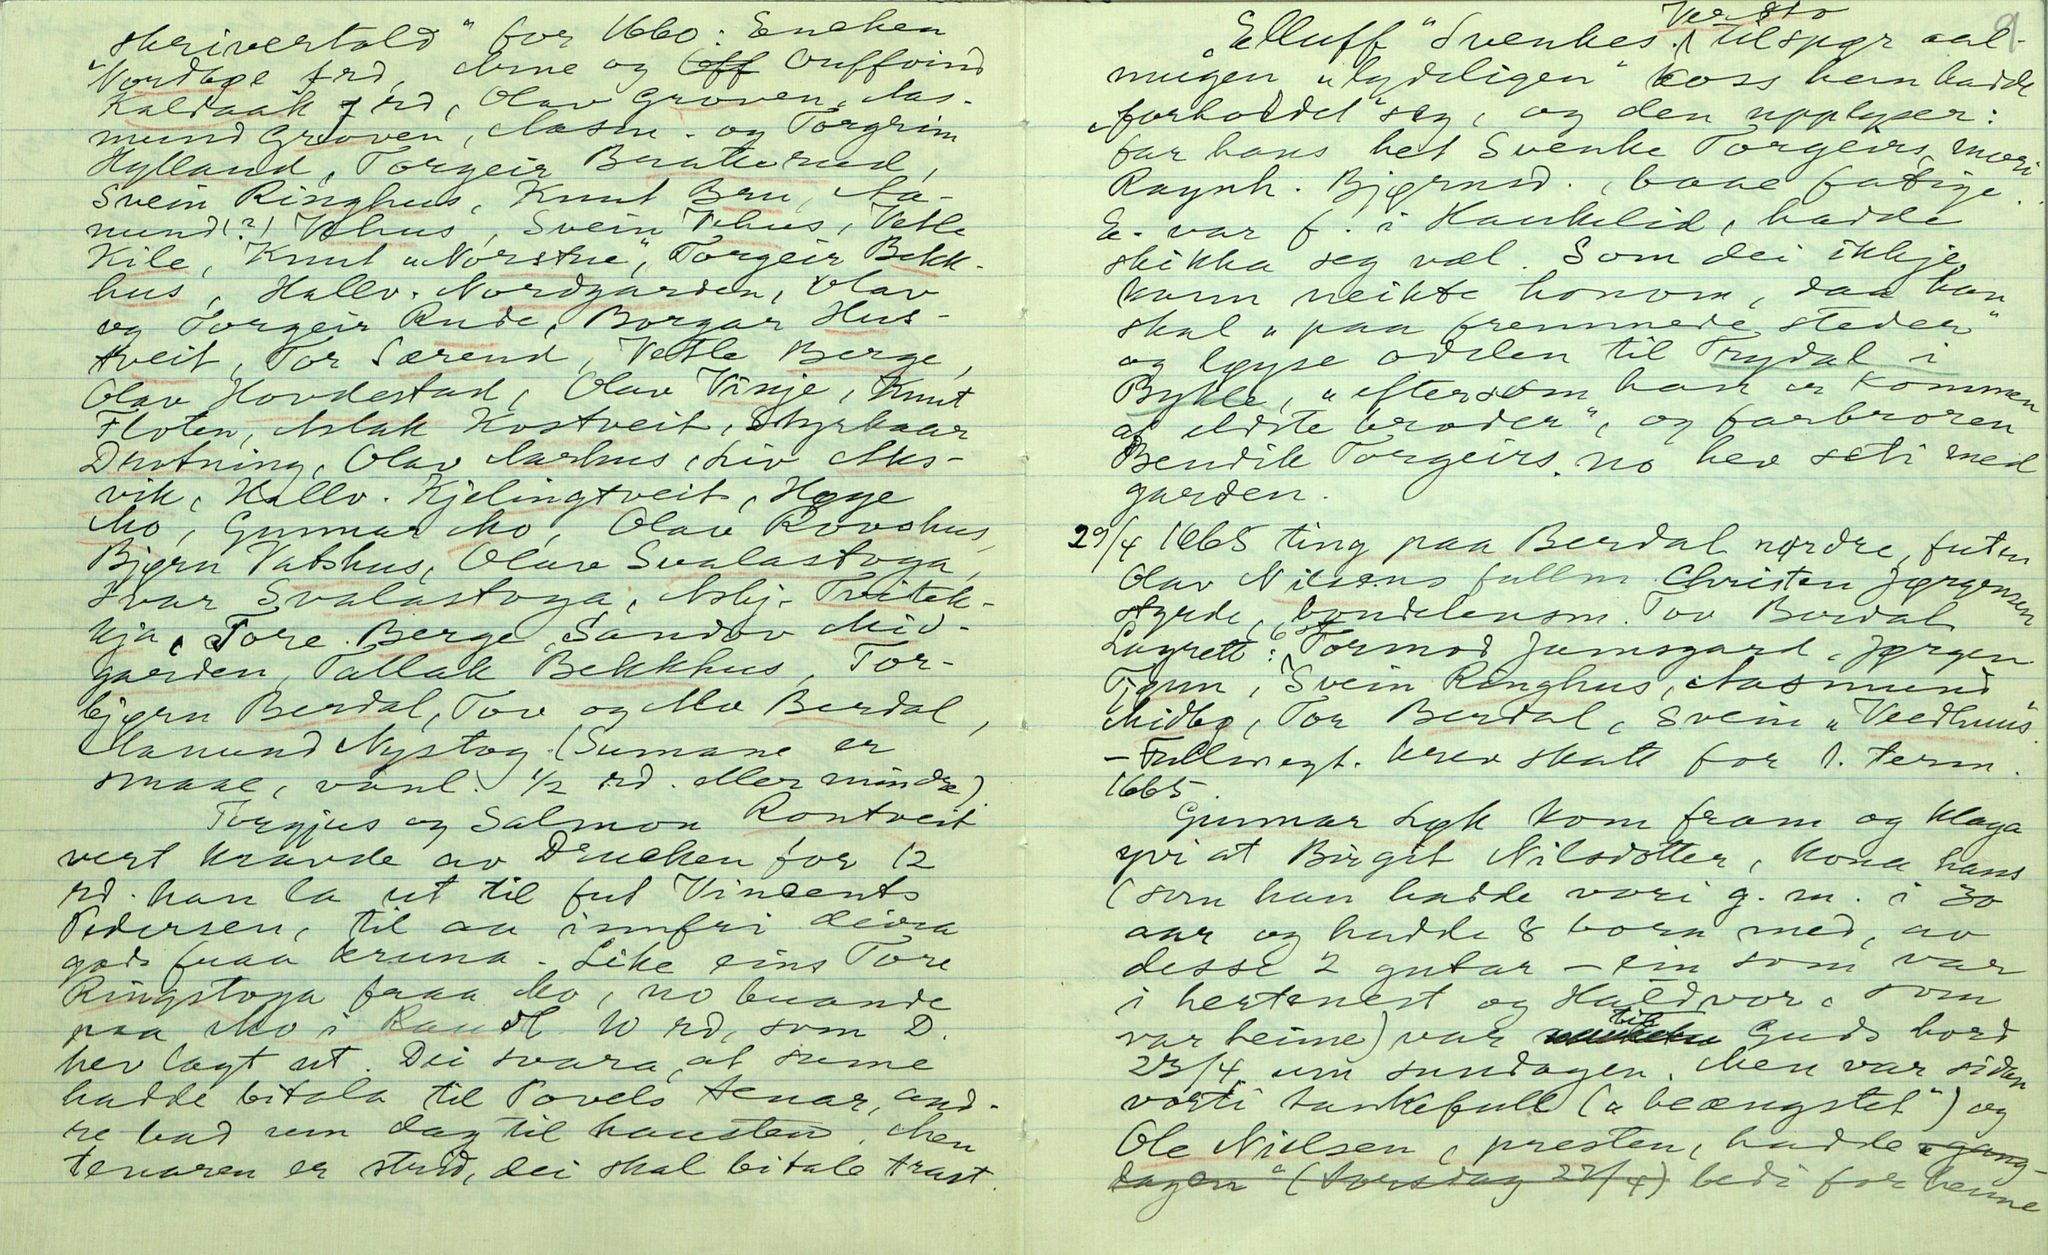 skrivertold" for 1660: Encken
"Nordbøe ½ rd, Arne og Ouffvind
Kaldaak ½ rd, Olav Groven, Aas-
mund Groven, Aasm. og Torgrim
Hylland, Torgeir Bratterud,
Svein Ringhus, Knut Bru, Aa-
mund (?) Vehus, Svein Vehus, Vetle
Kile, Knut "Norstue", Torgeir Bekk-
hus, Hallv. Nordgarden, Olav
og Torgeir Rude, Borgar Hus-
tveit, Tor Særend, Vetle Berge,
Olav Hovdestad, Olav Vinje, Knut
Floten, Aslak Kostveit, Styrkaar
Drotning, Olav Aarhus, Liv Aks-
vik, Hallv. Kjelingtveit, Høye
Mo, Gunnar Mo, Olav Rovshus,
Bjørn Vatshus, Olav Svalastoga,
Ivar Svalastoga, Asbj. Tveitek-
kja, Tore Berge, Sandov Mid-
garden, Tallak Bekkhus, Tor-
bjørn Berdal, Tov og Alv Berdal,
Aamund Nystog. (Sumane er
smaae, vanl. ½ rd. eller mindre)
Torgjus og Salmon Rontveit
vert kravde av Drucken for 12
rd. han la ut til fut Vincents
Pedersen, til aa innfri deira
gods fraa kruna. Like eins Tore
Ringstoga fraa Mo, no buande
paa Mo i Raul 10 rd, som D.
hev lagt ut. Dei svara, at sume
hadde bitala til Povels tenar, and-
re bad um dag til hausten. Men
tenaren er strid, dei skal bitale trast.
9
"Elluff" Svenkes. tilspør aal-
mugen "lydeligen" koss han hadde
"forholdet" seg, og den upplyser:
far hans het Svenke Torgeirs, mori
Raynh. Bjørnsd., baae fatige.
E. var f. i Haukelid, hadde
skikka seg væl. Som dei ikkje
kunn neikte honom, daa han
skal "paa fremmede steder"
og løyse odelen til Trydal i
Bykle, "eftersom han er kommen
af eldste broder", og farbroren
Bendik Torgeirs. no hev seti med
garden.
29/4 1665 ting paa Berdal nørdre, futen
Olav Nilsens fullm. Christen Jørgensen
styrde, bondelensm. Tov Berdal
Lagrett: 6 st Tormod Jamsgard, Jørgen
Tjønn, Svein Ringhus, Aasmund
Midbø, Tor Berdal, Svein "Veedhuus".
- Fullmegt. krev skatt for 1. term.
1665.
Gunnar Løk kom fram og klaga
yvi at Birgit Nilsdotter, kona hans
(som han hadde vori g. m. i 30
aar og hadde 8 born med, av
desse 2 gutar - ein som var
i hertenest og Haldvor, som
var heime) var til Guds bord
23/4 um sundagen. Men var sidan
vorti tankefull ("beængstet") og
Ole Nielsen, presten, hadde "gang-
dagen" (torsdag 27/4) bedi for henne